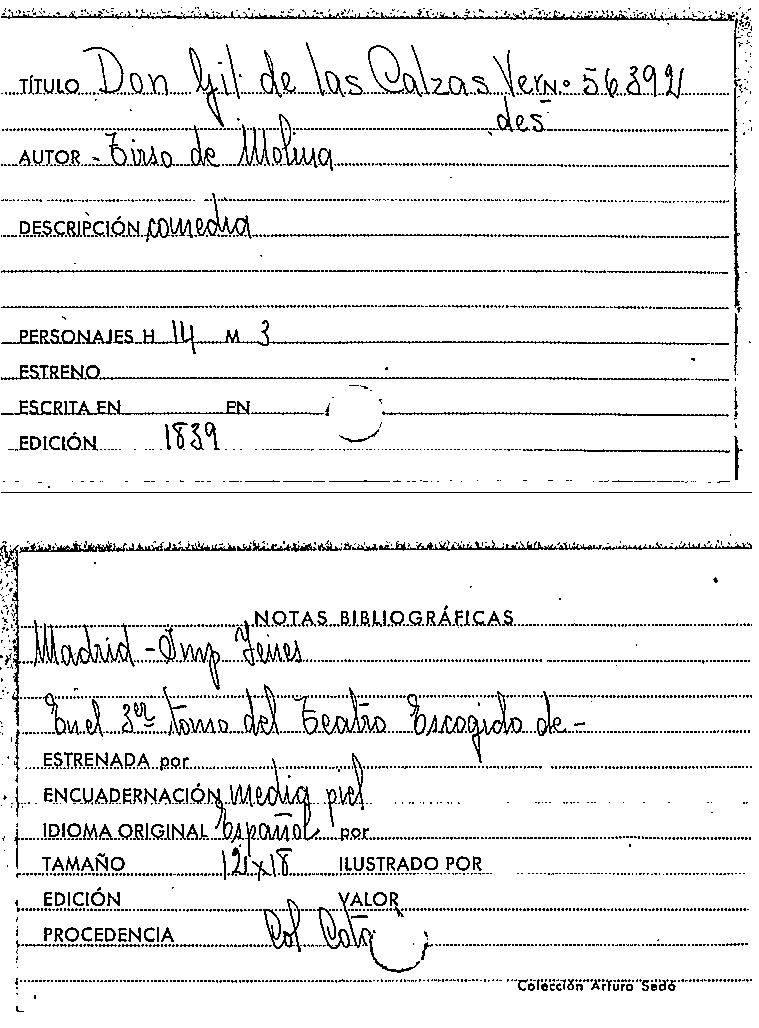 TÍTULO Don Gil de las Calzas Ver N.º 56392
des
AUTOR - Tirso de Molina
DESCRIPCIÓN comedia
PERSONAJES H 14 M 3
ESTRENO
ESCRITA EN EN
EDICIÓN 1839
NOTAS BIBLIOGRÁFICAS
Madrid - Imp Yenes
En el 3er tomo del Teatro Escogido de -
ESTRENADA por
ENCUADERNACIÓN media piel
IDIOMA ORIGINAL Español por
TAMAÑO 12x18 ILUSTRADO POR
EDICIÓN VALOR
PROCEDENCIA Col Cota
Colección Arturo Sedó